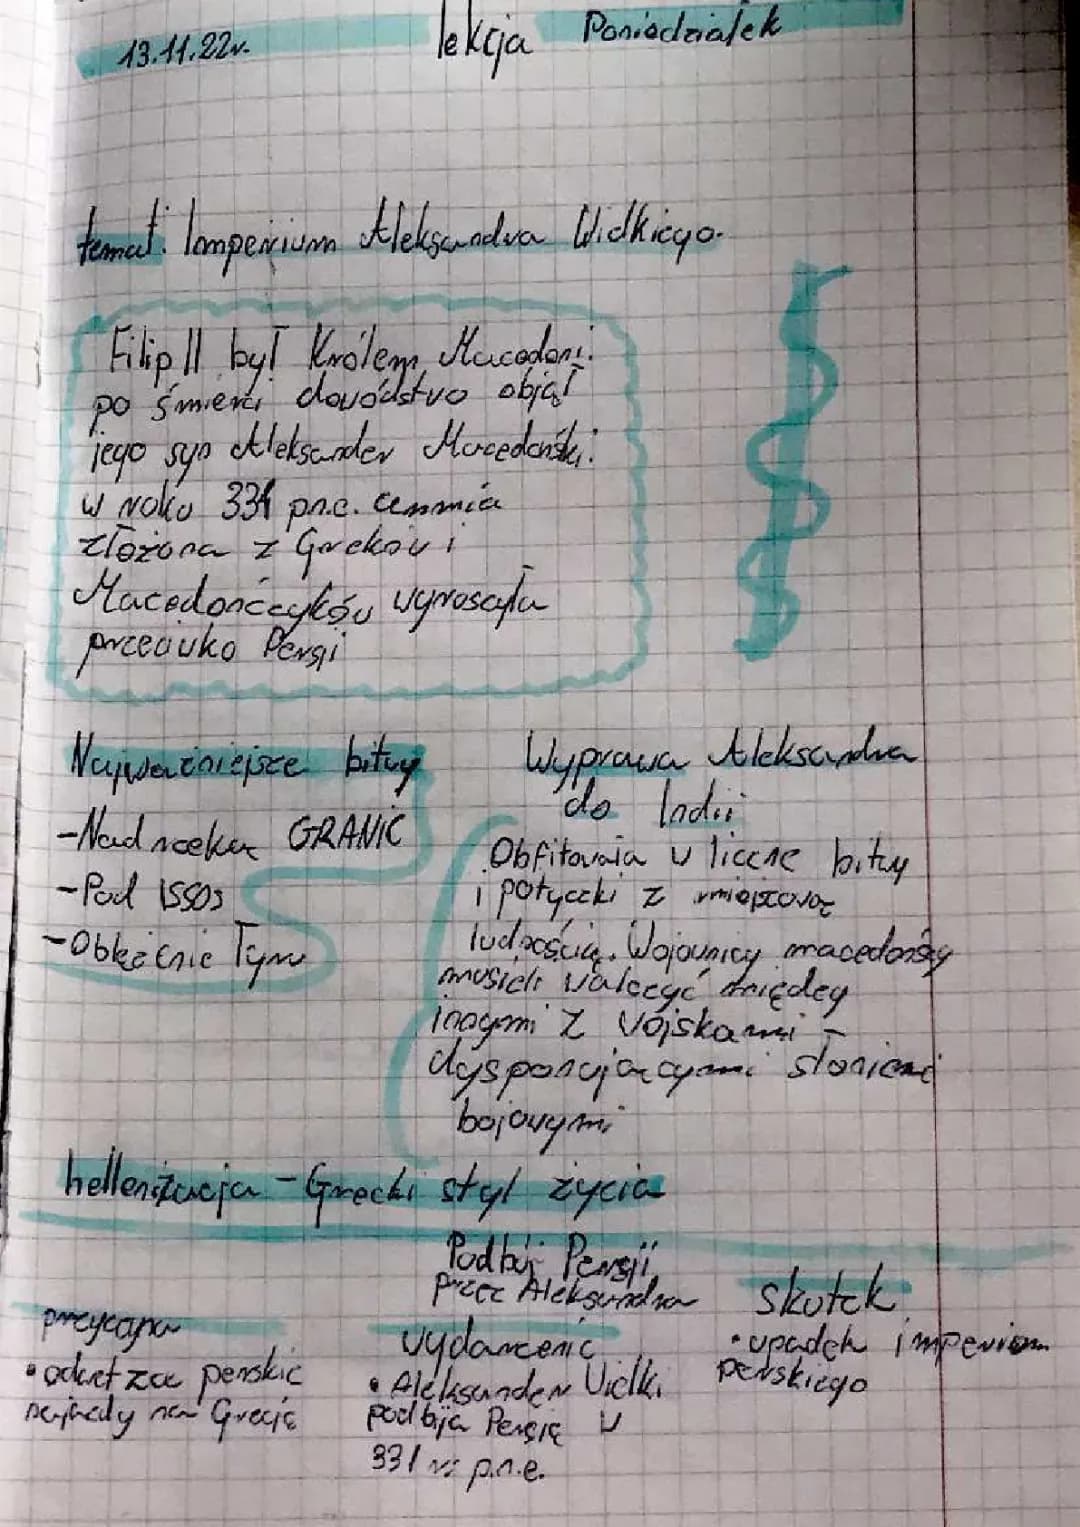 13.11.22r. lekcja Poniedziałek
temat: Imperium Aleksandra Wielkiego.
Filip II był Królem Macedoni.
po śmierci dowództwo objął
jego syn Aleksander Macedoński.
w roku 334 p.n.e. armia
złożona z Greków i
Macedończyków wyruszyła
przeciwko Persji
Najważniejsze bitwy
-Nad rzeką GRANIC
-Pod ISSOS
-Oblężenie Tyru
Wyprawa Aleksandra
do Indii
Obfitowała w liczne bitwy
i potyczki z miejscową
ludnością. Wojownicy macedońscy
musieli walczyć między
innymi z wojskami -
dysponującymi słoniami
bojowymi
hellenizacja - Grecki styl życia
Podbój Persji
przez Aleksandra
przyczyna
• odwet za perskie
najazdy na Grecję
wydarzenie
• Aleksander Wielki
podbija Persję w
331 r. p.n.e.
skutek
• upadek imperium
perskiego